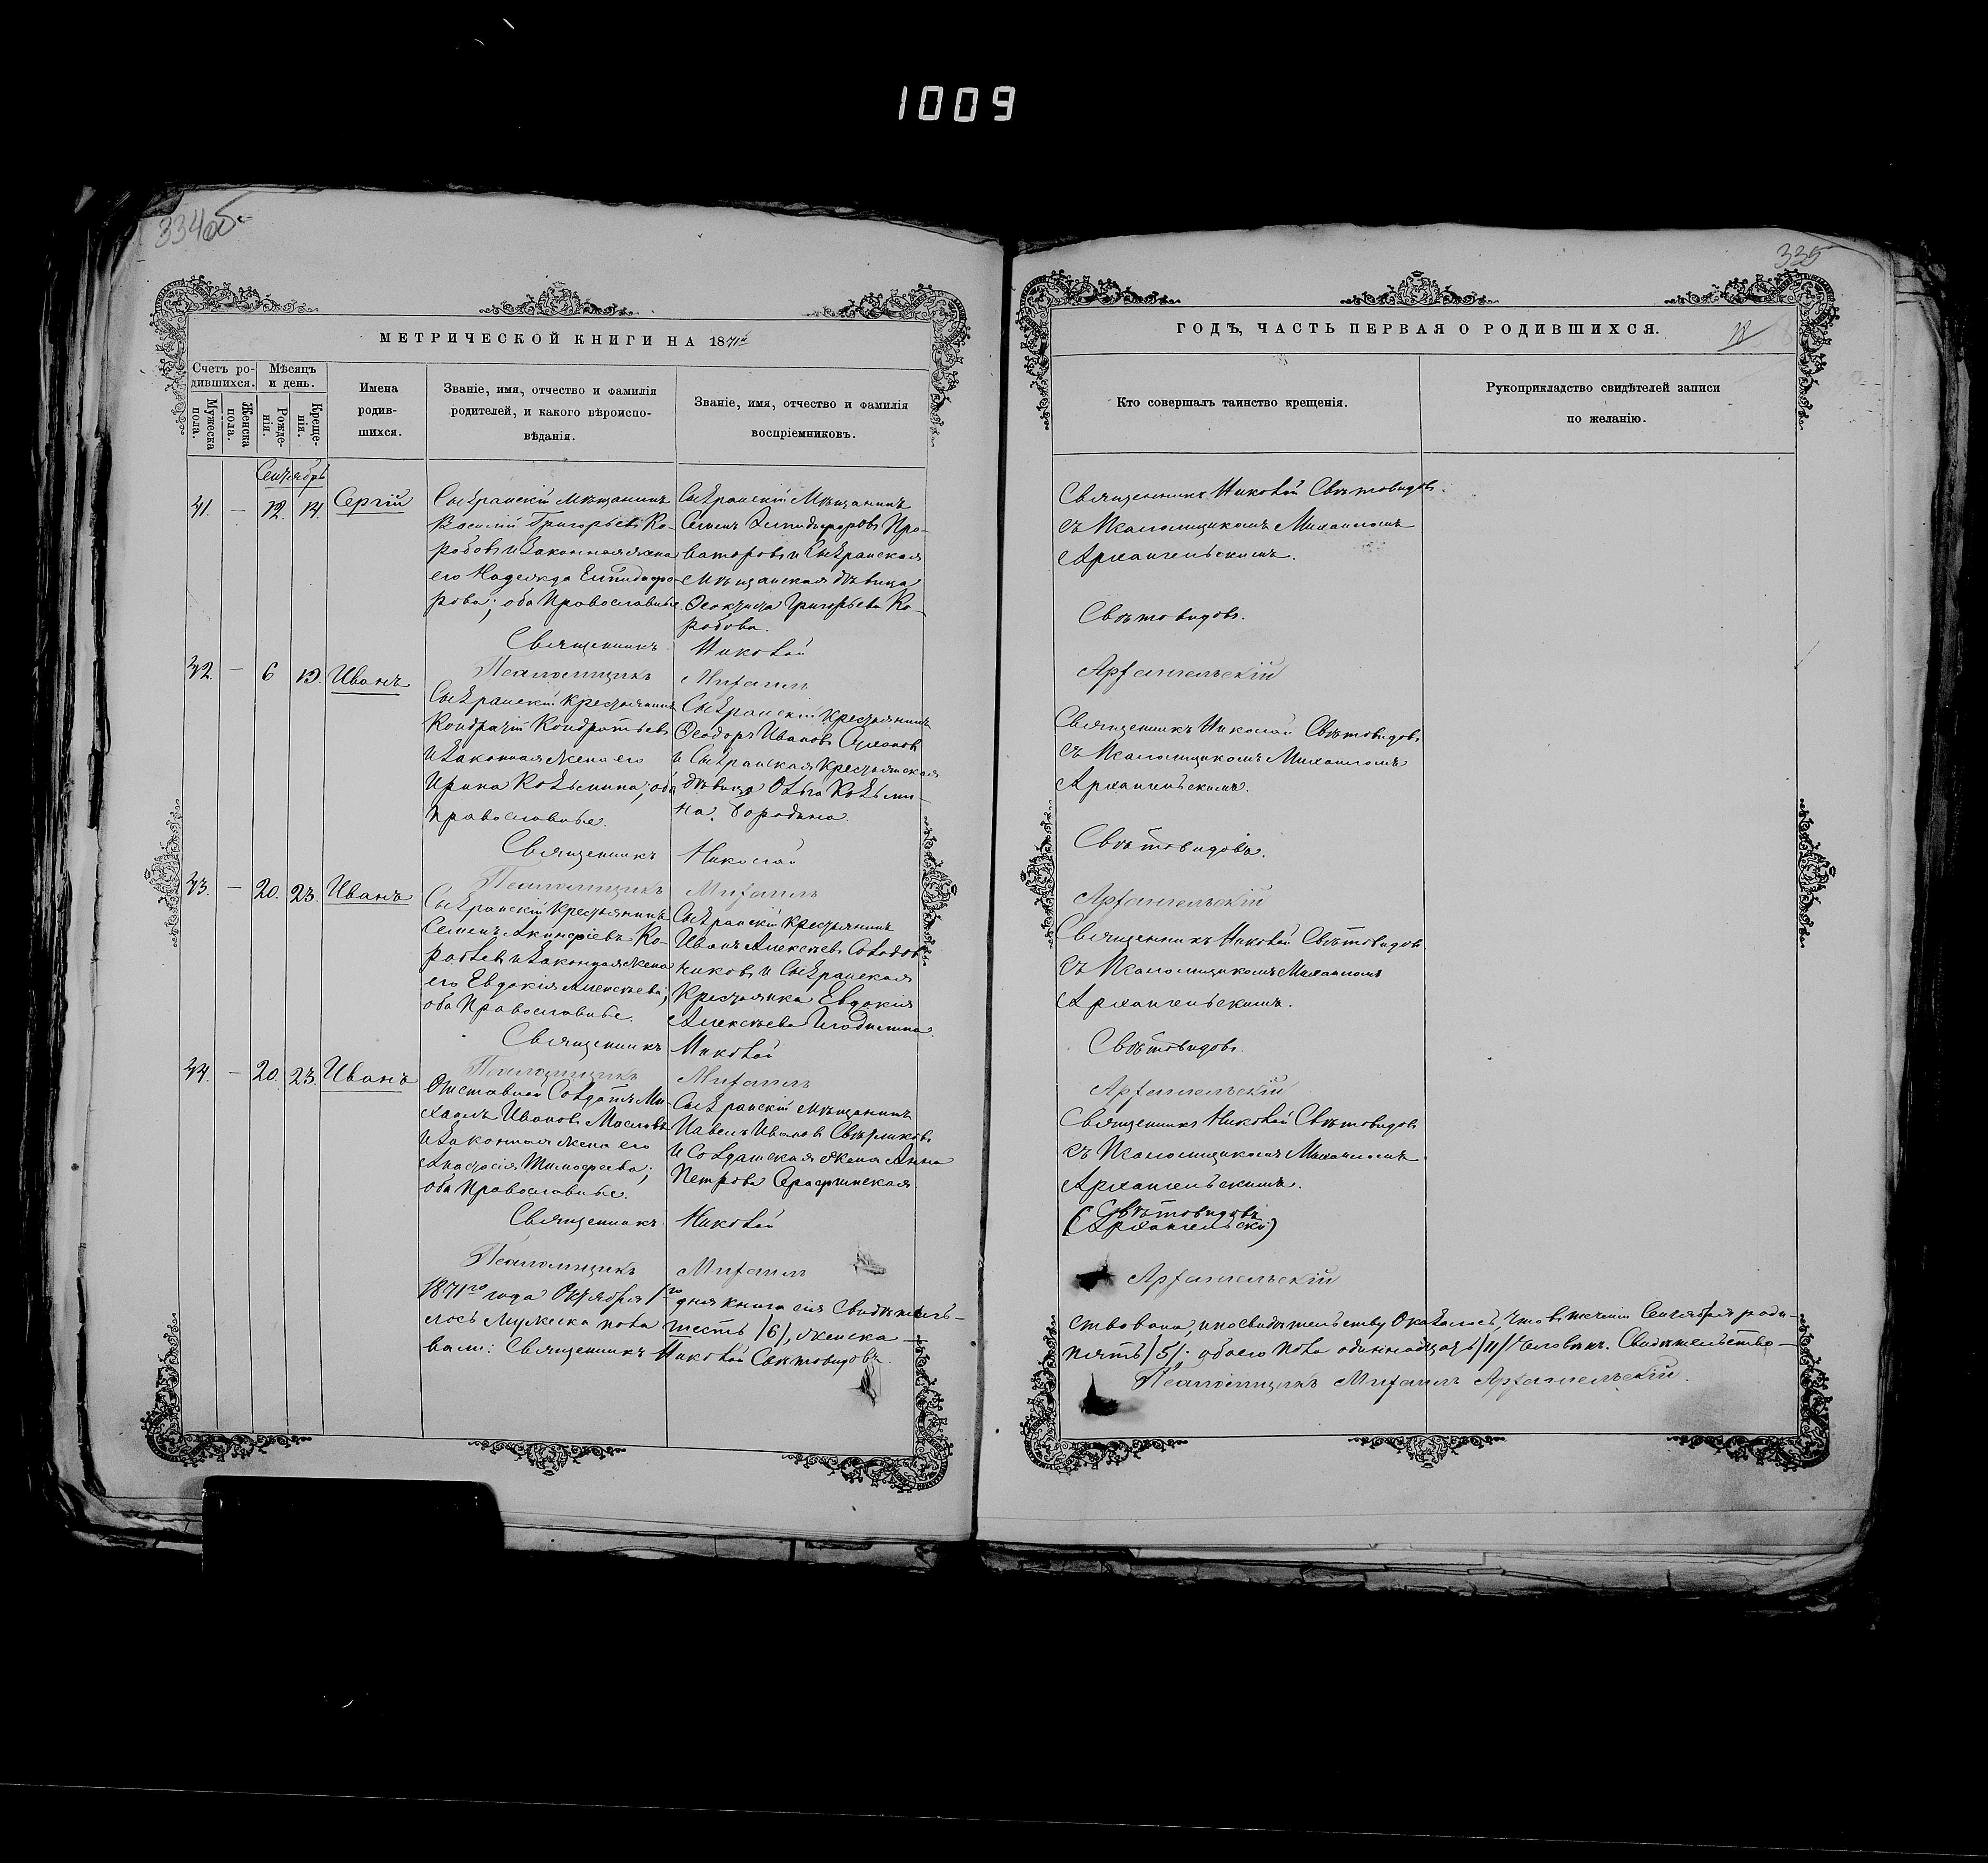 1009
334об
МЕТРИЧЕСКОЙ КНИГИ НА 1871й
Счетъ ро-
дившихся.
Мѣсяцъ
и день.
Мужеска
пола.
Женска
пола.
Рожде-
нія.
Креще-
нія.
Имена
родив-
шихся.
Званіе, имя, отчество и фамилія
родителей, и какого вѣроиспо-
вѣданія.
Званіе, имя, отчество и фамилія
воспріемниковъ.
Сентябрь
41. — 12. 14. Сергій
Сызранскій Мѣщанинъ
Василій Григорьевъ Ко-
робовъ и Законная жена
его Надежда Епидифо-
рова; оба Православные.
Сызранскій Мѣщанинъ
Семенъ
и Сызранская
мѣщанская дѣвица
Григорьева Ко-
робова.
Священникъ Николай
Псаломщикъ Михаилъ
42. — 6 13. Иванъ
Сызранскій Крестьянинъ
Кондратій Кондратьевъ
и Законная жена его
Ирина Козьмина; оба
Православные.
Сызранскій Крестьянинъ
Ѳеодоръ Ивановъ
и Сызранская Крестьянская
дѣвица Ольга Козьми-
на Бородина.
Священникъ Николай
Псаломщикъ Михаилъ
43. — 20. 23. Иванъ
Сызранскій Крестьянинъ
Семенъ Акинфіевъ
и Законная жена
его Евдокія Алексѣева;
оба Православные.
Сызранскій Крестьянинъ
Иванъ Алексѣевъ Солодов
никовъ и Сызранская
Крестьянка Евдокія
Алексѣева
Священникъ Николай
Псаломщикъ Михаилъ
44. — 20. 23. Иванъ
Отставной Солдатъ Ми-
хаилъ Ивановъ Масловъ
и Законная жена его
Анастасія Тимофеева;
оба Православные.
Сызранскій мѣщанинъ
Павелъ Ивановъ
и Солдатская жена Анна
Петрова
Священникъ Николай
Псаломщикъ Михаилъ
1871го года Октября 1го дня книга сія Свидѣтель-
лось Мужеска пола шесть /6/, женска —
вали: Священникъ Николай Свѣтовидовъ.
335
ГОДЪ, ЧАСТЬ ПЕРВАЯ О РОДИВШИХСЯ.
18
Кто совершалъ таинство крещенія.
Рукоприкладство свидѣтелей записи
по желанію.
Священникъ Николай Свѣтовидовъ
съ Псаломщикомъ Михаиломъ
Архангельскимъ.
Свѣтовидовъ.
Архангельскій
Священникъ Николай Свѣтовидовъ
съ Псаломщикомъ Михаиломъ
Архангельскимъ.
Свѣтовидовъ.
Архангельскій
Священникъ Николай Свѣтовидовъ
съ Псаломщикомъ Михаиломъ
Архангельскимъ.
Свѣтовидовъ.
Архангельскій
Священникъ Николай Свѣтовидовъ
съ Псаломщикомъ Михаиломъ
Архангельскимъ.
Свѣтовидовъ
(Архангельскій)
Архангельскій
ствована, и по свидѣтельству Оказалось, что въ теченіи Сентября роди-
пять /5/: обоего пола одиннадцать /11/ Человѣкъ. Свидѣтельство-
Псаломщикъ Михаилъ Архангельскій.